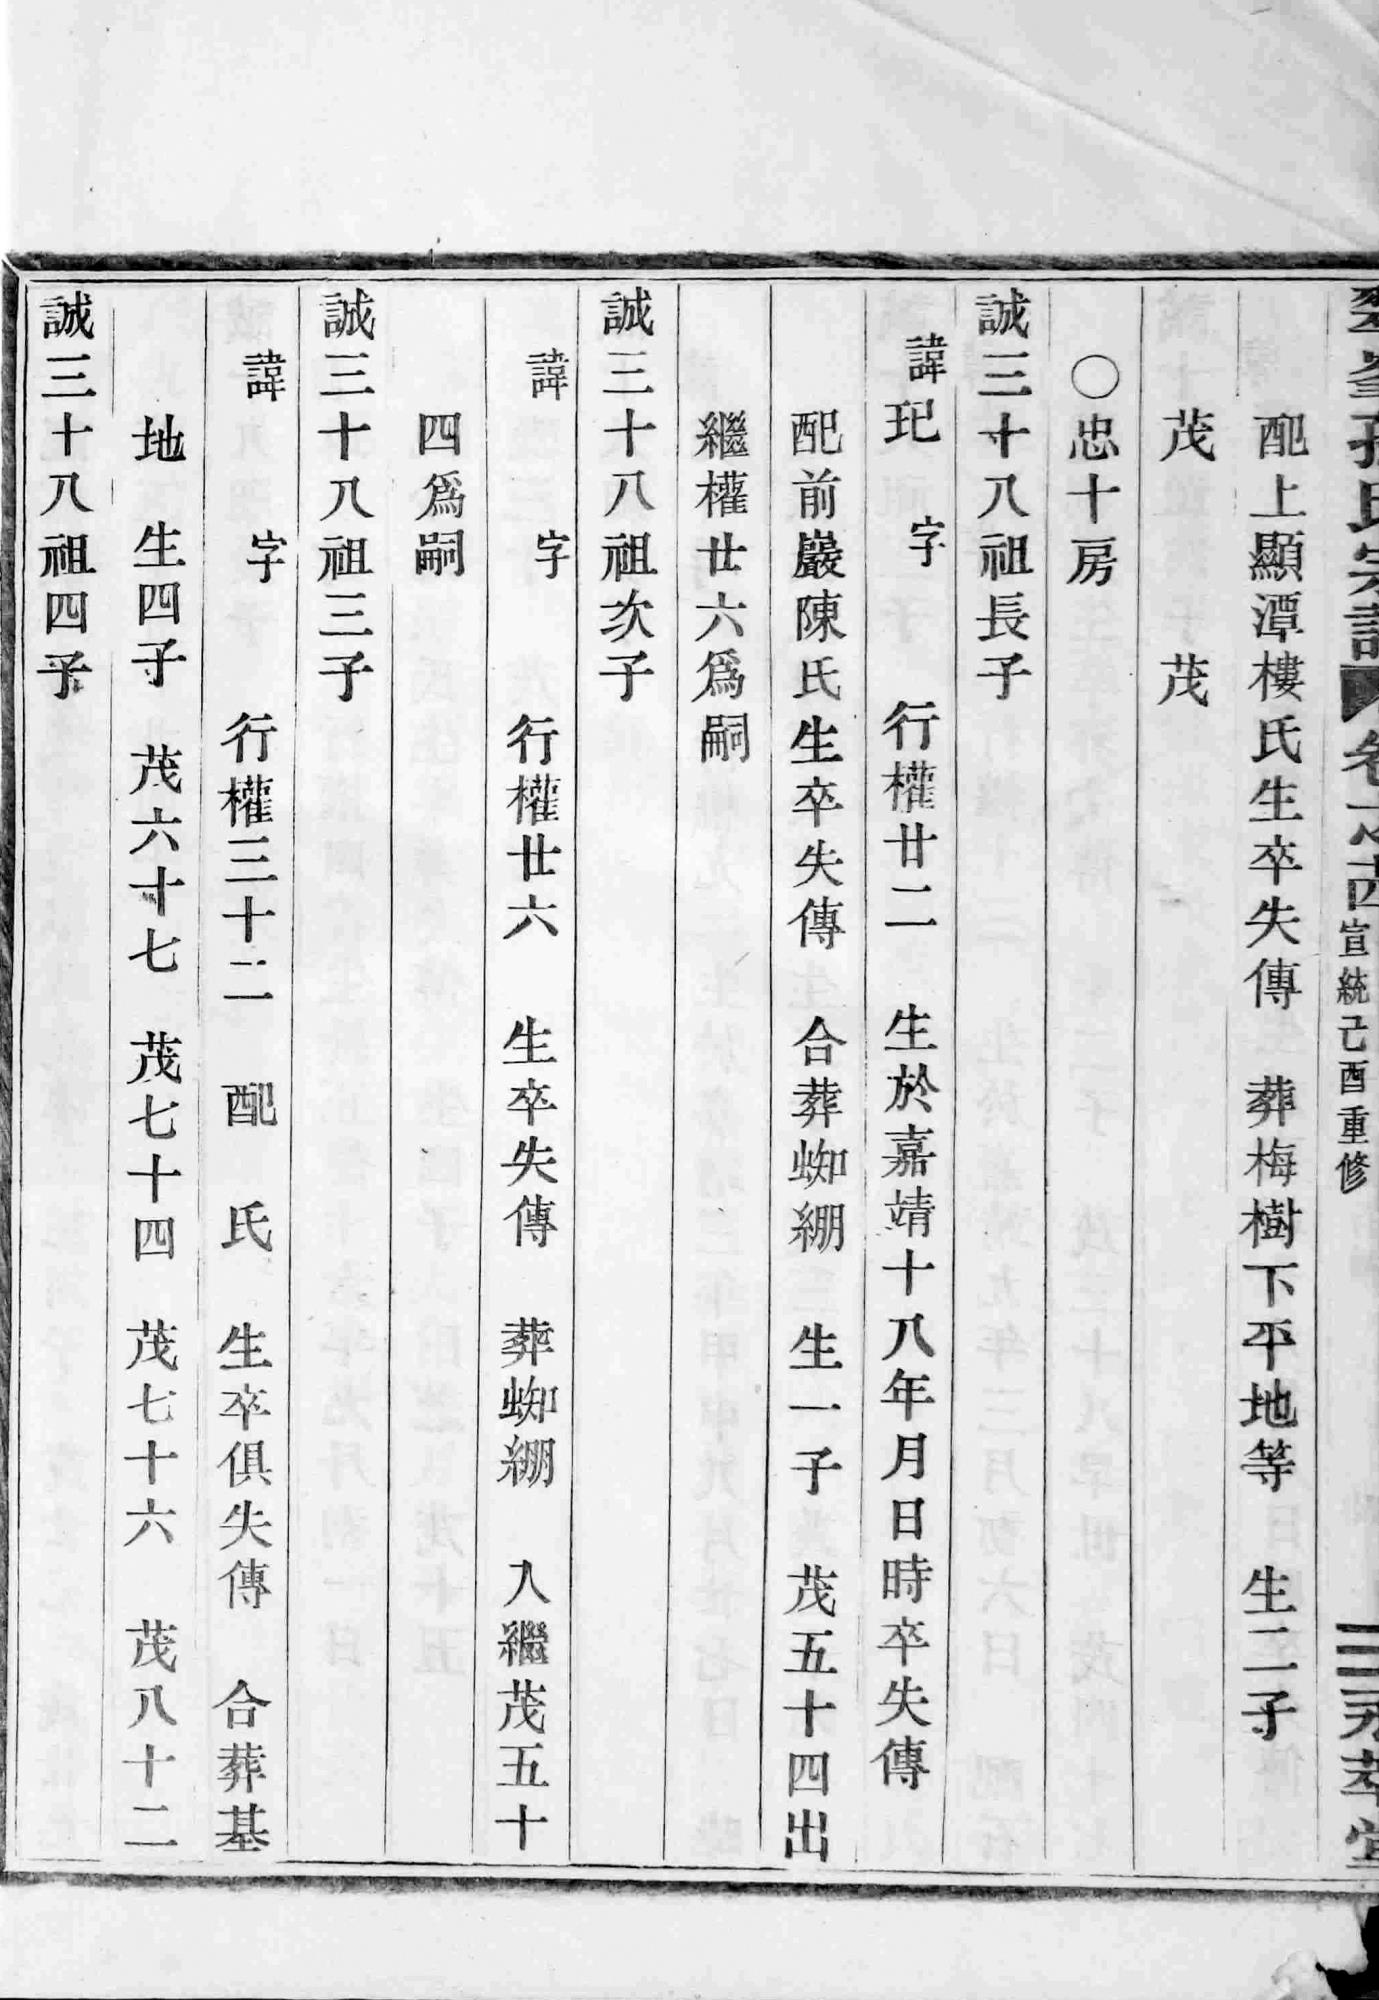 孫氏宗譜 卷之 宣統己酉重修 萃堂
配上顯潭樓氏生卒失傳 葬梅樹下平地等 生二子
茂 茂
〇忠十房
誠三十八祖長子
諱玘 字 行權廿二 生於嘉靖十八年月日時卒失傳
配前巖陳氏生卒失傳 合葬蜘綳 生一子 茂五十四出
繼權廿六為嗣
誠三十八祖次子
諱 字 行權廿六 生卒失傳 葬蜘綳 入繼茂五十
四為嗣
誠三十八祖三子
諱 字 行權三十二 配 氏 生卒俱失傳 合葬基
地 生四子 茂六十七 茂七十四 茂七十六 茂八十二
誠三十八祖四子